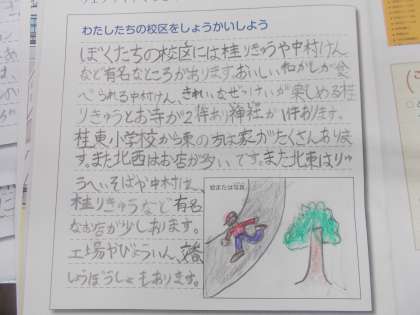 わたしたちの校区をしょうかいしよう
ぼくたちの校区には桂りきゅうや中村けん
など有名なところがあります。おいしいわがしが食
べられる中村けん、きれいなぜっけいが楽しめる桂
りきゅうとお寺が2件あり神社が1件あります。
桂東小学校から東の方は家がたくさんありま
す。また北西はお店が多いです。また北東はりゅ
うへいそばや中村けん、
桂りきゅうなど有名
なお店が少しあります。
工場やびょういん、交番
しょうぼうしょもあります。
絵または写真